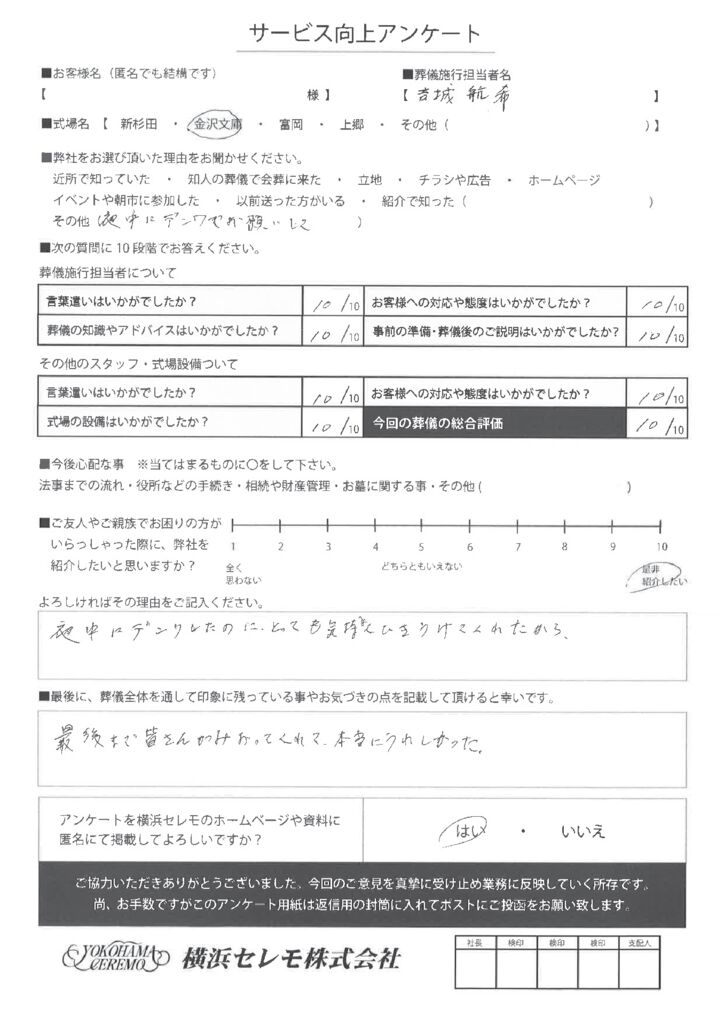 サービス向上アンケート
■お客様名（匿名でも結構です）　■葬儀施行担当者名
【　様】　【吉城 航希　】
■式場名【　新杉田　・　金沢文庫　・　富岡　・　上郷　・　その他（　）】
■弊社をお選び頂いた理由をお聞かせください。
近所で知っていた　・　知人の葬儀で会葬に来た　・　立地　・　チラシや広告　・　ホームページ
イベントや朝市に参加した　・　以前送った方がいる　・　紹介で知った（　）
その他（夜中にデンワでお願いして　）
■次の質問に10段階でお答えください。
葬儀施行担当者について
言葉遣いはいかがでしたか？　10/10　お客様への対応や態度はいかがでしたか？　10/10
葬儀の知識やアドバイスはいかがでしたか？　10/10　事前の準備・葬儀後のご説明はいかがでしたか？　10/10
その他のスタッフ・式場設備ついて
言葉遣いはいかがでしたか？　10/10　お客様への対応や態度はいかがでしたか？　10/10
式場の設備はいかがでしたか？　10/10　今回の葬儀の総合評価　10/10
■今後心配な事　※当てはまるものに〇をして下さい。
法事までの流れ・役所などの手続き・相続や財産管理・お墓に関する事・その他（　）
■ご友人やご親族でお困りの方が
いらっしゃった際に、弊社を
紹介したいと思いますか？
1　2　3　4　5　6　7　8　9　10
全く　どちらともいえない　是非
思わない　紹介したい
よろしければその理由をご記入ください。
夜中にデンワしたのに、とっても気持よくひきうけてくれたから、
■最後に、葬儀全体を通して印象に残っている事やお気づきの点を記載して頂けると幸いです。
最後まで皆さんがみおくってくれて、本当にうれしかった。
アンケートを横浜セレモのホームページや資料に
匿名にて掲載してよろしいですか？
はい　・　いいえ
ご協力いただきありがとうございました。今回のご意見を真摯に受け止め業務に反映していく所存です。
尚、お手数ですがこのアンケート用紙は返信用の封筒に入れてポストにご投函をお願い致します。
YOKOHAMA
CEREMO
横浜セレモ株式会社
社長　検印　検印　検印　支配人